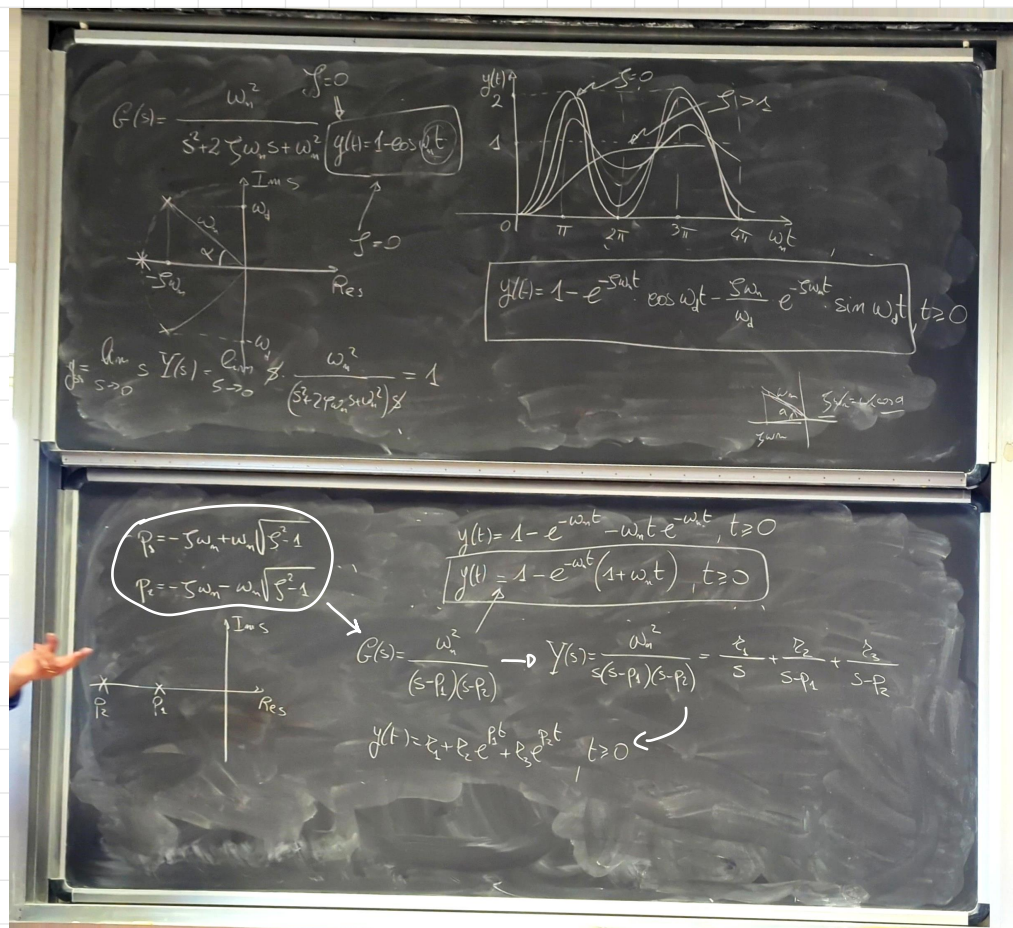 ζ=0
G(s)= ω_n² / (s²+2ζω_n s+ω_n²)
y(t)=1-cos ω_n t
ζ=0
Im s
ω_d
ω_n
α
-ζω_n
Re s
-ω_d
lim_{s→0} s Y(s) = lim_{s→0} s · ω_n² / ((s²+2ζω_n s+ω_n²)s) = 1
y(t)
2
1
0
π 2π 3π 4π ω_n t
ζ=0
ζ>1
y(t)=1-e^{-ζω_n t} · cos ω_d t - ζω_n/ω_d e^{-ζω_n t} · sin ω_d t, t≥0
ω_n
α
ζω_n
ζω_n=ω_n cos α
P_1=-ζω_n+ω_n√(ζ²-1)
P_2=-ζω_n-ω_n√(ζ²-1)
Im s
P_2 P_1 Re s
y(t)=1-e^{-ω_n t}-ω_n t e^{-ω_n t}, t≥0
y(t)=1-e^{-ω_n t}(1+ω_n t), t≥0
G(s)= ω_n² / ((s-p_1)(s-p_2)) → Y(s)= ω_n² / (s(s-p_1)(s-p_2)) = r_1/s + r_2/(s-p_1) + r_3/(s-p_2)
y(t)=r_1+r_2 e^{p_1 t}+r_3 e^{p_2 t}, t≥0